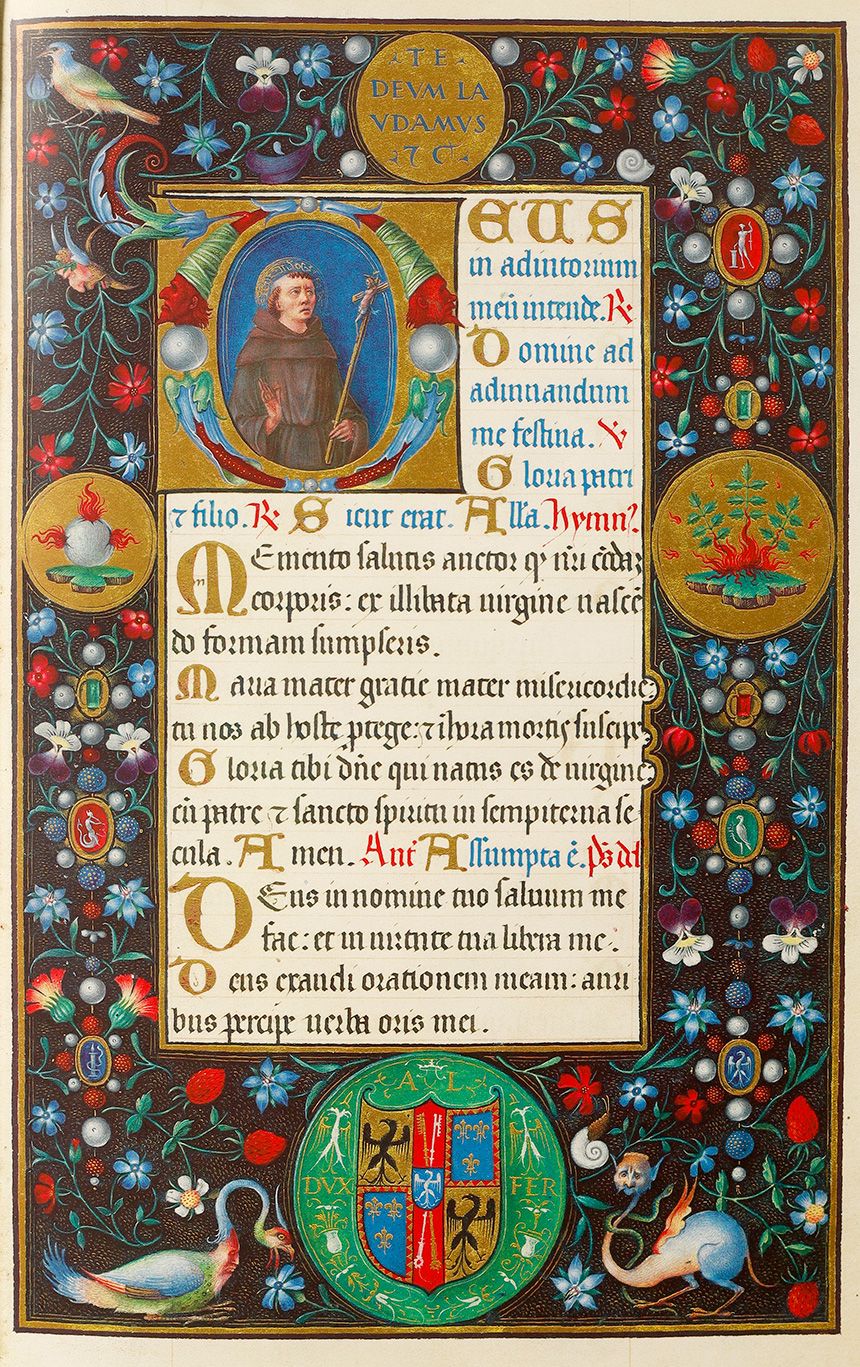 · TE ·
DEVM LA
VDAMVS
· ⁊ C ·
DEUS
in adiutorium
meū intende. ℟
Domine ad
adiuuandum
me festina. ℣
Gloria patri
⁊ filio. ℟ Sicut erat. Alla. Hymnꝰ
MEmento salutis auctor ꝙ nr̄i
corporis: ex illibata uirgine nascē
do formam sumpseris.
Maria mater gratie mater misericordie
tu nos ab hoste ꝓtege: ⁊ i hora mortis suscipe
Gloria tibi dn̄e qui natus es de uirgine
cū patre ⁊ sancto spiritu in sempiterna se
cula. Amen. Ant̄ Assumpta ē. ps̄
DEus in nomine tuo saluum me
fac: et in uirtute tua libera me.
Deus exaudi orationem meam: auri
bus ꝑcipe uerba oris mei.
AL
DVX FER